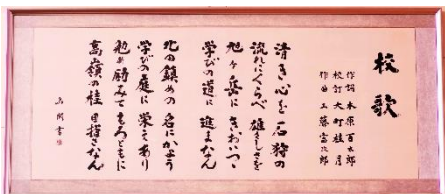 校歌
作詞 本原百太郎
校訂 大町桂月
作曲 工藤富次郎
清き心を 石狩の
流れにくらべ 雄々しさを
旭ヶ岳に きわいつゝ
学びの道に 進まなん
北の鎮めの 名にかなう
学びの庭に 栄えあり
勉め励みて もろともに
高嶺の桂 目指さなん